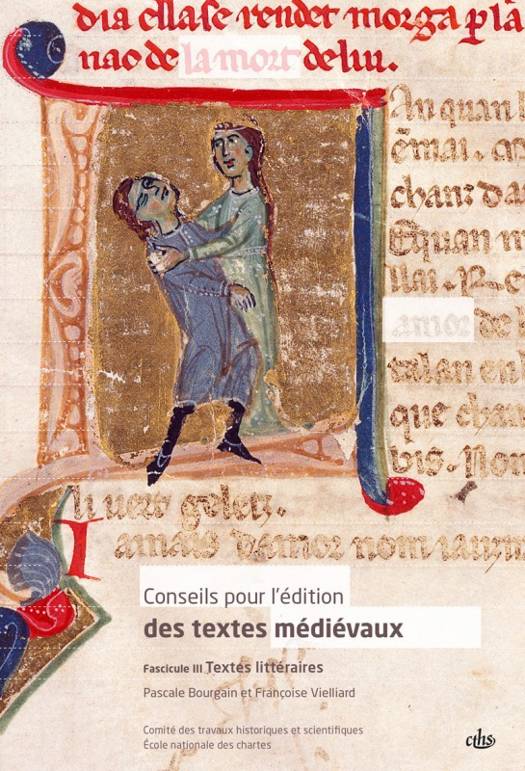 dia ellase render morga per la
nao de la mort de lui.
An quan
chan
amor de l
talan en
que chan
uis. Non
li uers
amais damor nom
Conseils pour l'édition
des textes médiévaux
Fascicule III Textes littéraires
Pascale Bourgain et Françoise Vielliard
Comité des travaux historiques et scientifiques
École nationale des chartes
cths